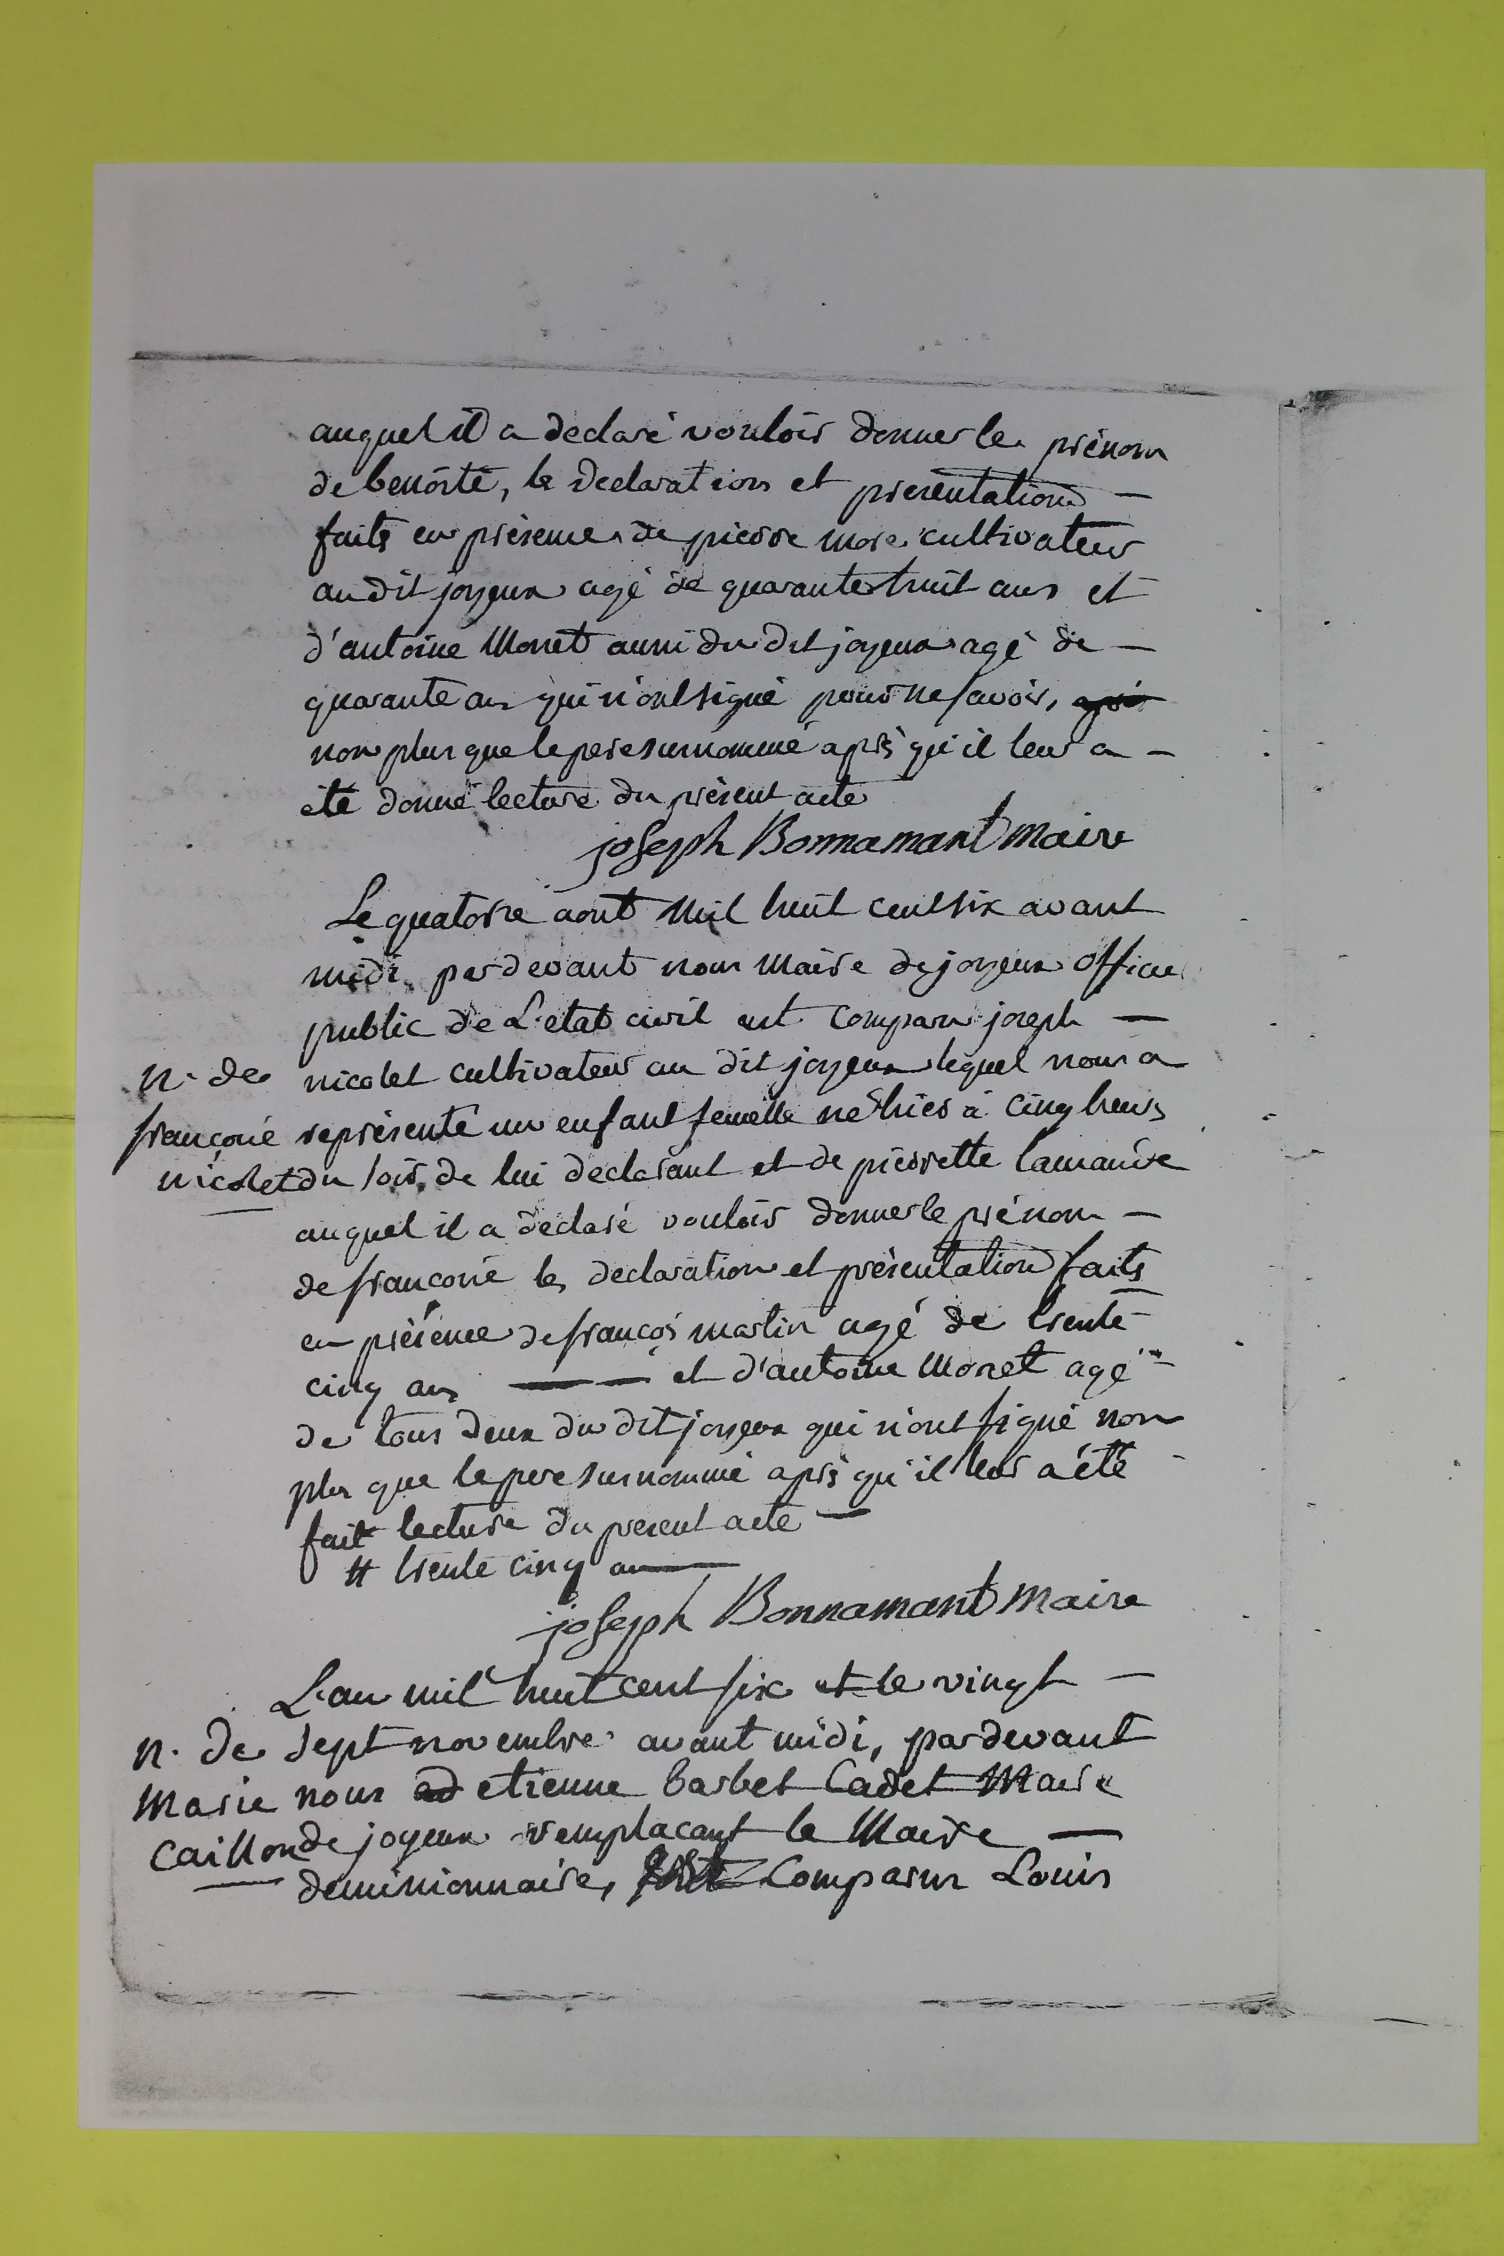 auquel il a declaré vouloir donner le prénom
de benoîte, les declarations et presentations —
faites en présence de pierre more cultivateur
au dit joyeux agé de quarante huit ans et
d'antoine Monet aussi du dit joyeux agé de —
quarante ans qui n'ont signé pour ne savoir,
non plus que le pere surnommé après qu'il leur a —
été donné lecture du présent acte
joseph Bonnamant maire
Le quatorze aout Mil huit cent six avant
midi par devant nous Maire de joyeux officier
public de L'etat civil est comparu joseph —
nicolet cultivateur au dit joyeux lequel nous a
représenté un enfant femelle né hier à cinq heures
du soir, de lui declarant et de pierrette lamande
auquel il a déclaré vouloir donner le prénom —
de françoise les declaration et présentation faits
en présence de françois martin agé de trente
cinq ans —— et d'antoine Monet agé #
de tous deux du dit joyeux qui n'ont signé non
plus que le pere surnommé après qu'il leur a été
fait lecture du present acte —
# trente cinq ans
joseph Bonnamant maire
n. de
françoise
nicolet
L'an mil huit cent six et le vingt —
sept novembre avant midi, pardevant
nous etienne barbet Cadet Maire
de joyeux remplacant le Maire —
demissionnaire, Comparus Louis
n. de
Marie
Caillon